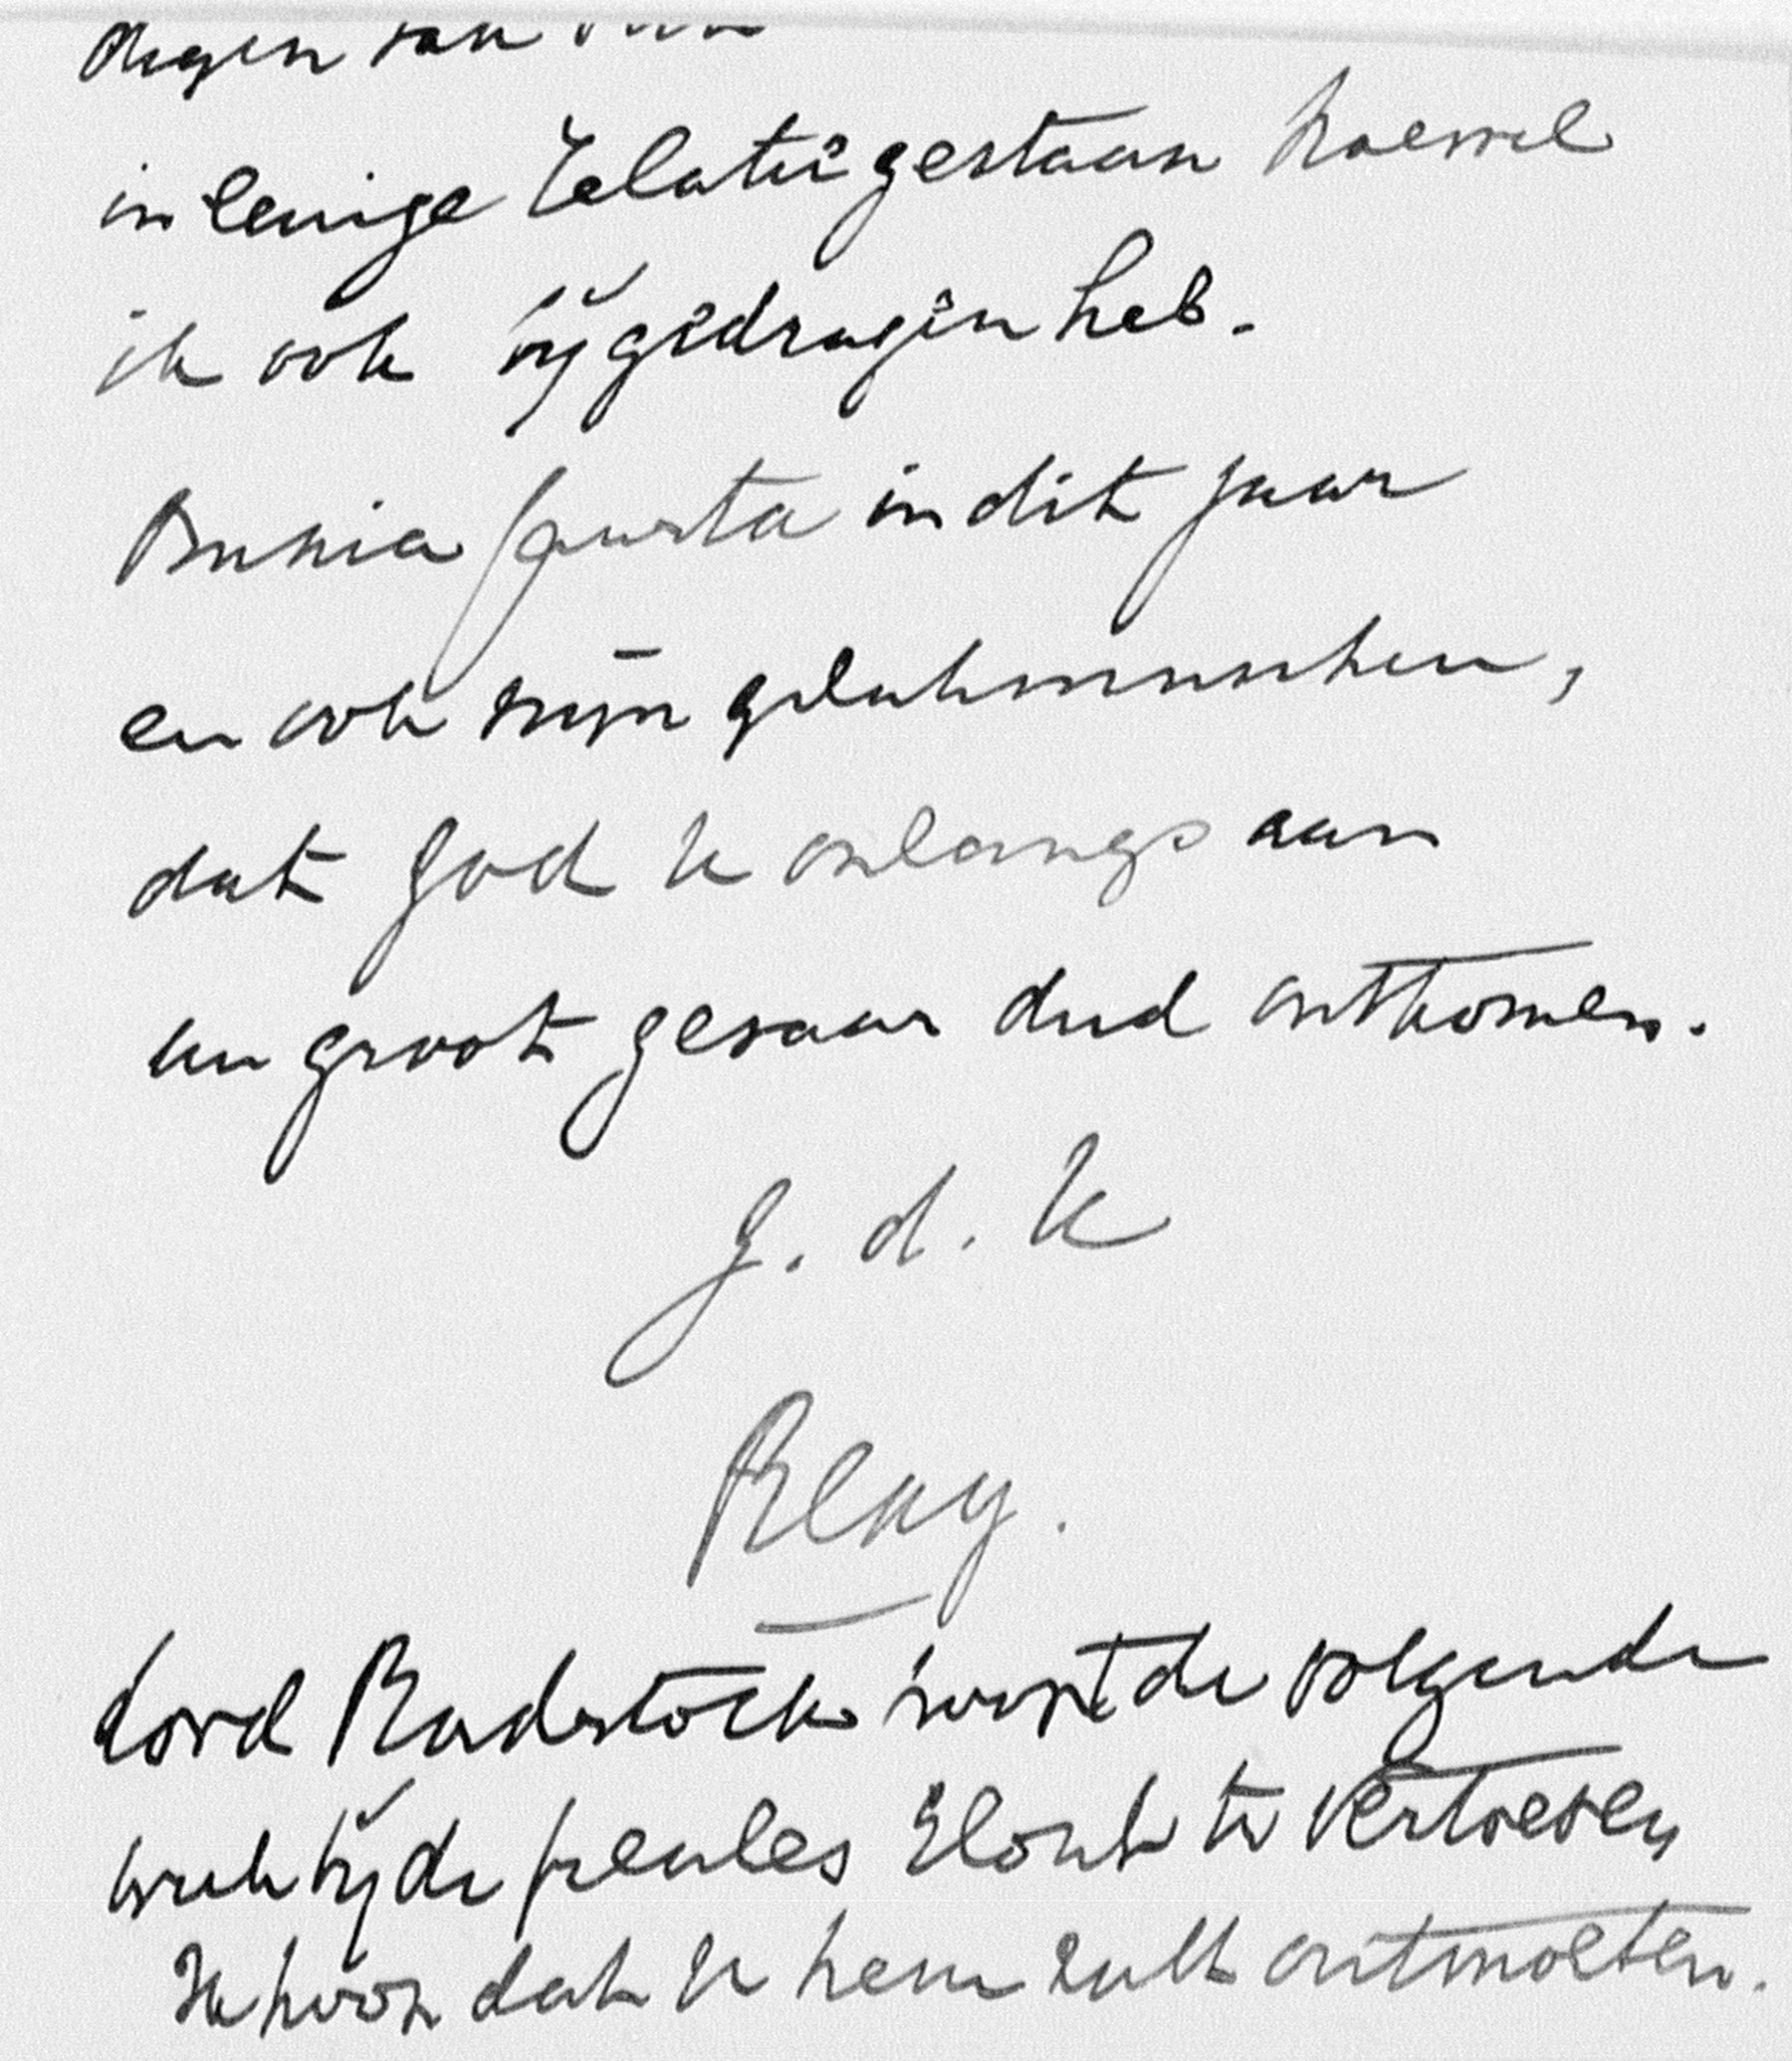 in eenige relatie gestaan hoewel
ik ook bijgedragen heb.
Omnia fausta in dit jaar
en ook mijn gelukwenschen,
dat God U onlangs aan
een groot gevaar deed ontkomen.
t. d. U
Reay.
Lord Radstock hoopt de volgende
week bij de freules Elout te vertoeven
Ik hoop dat U hem zult ontmoeten.